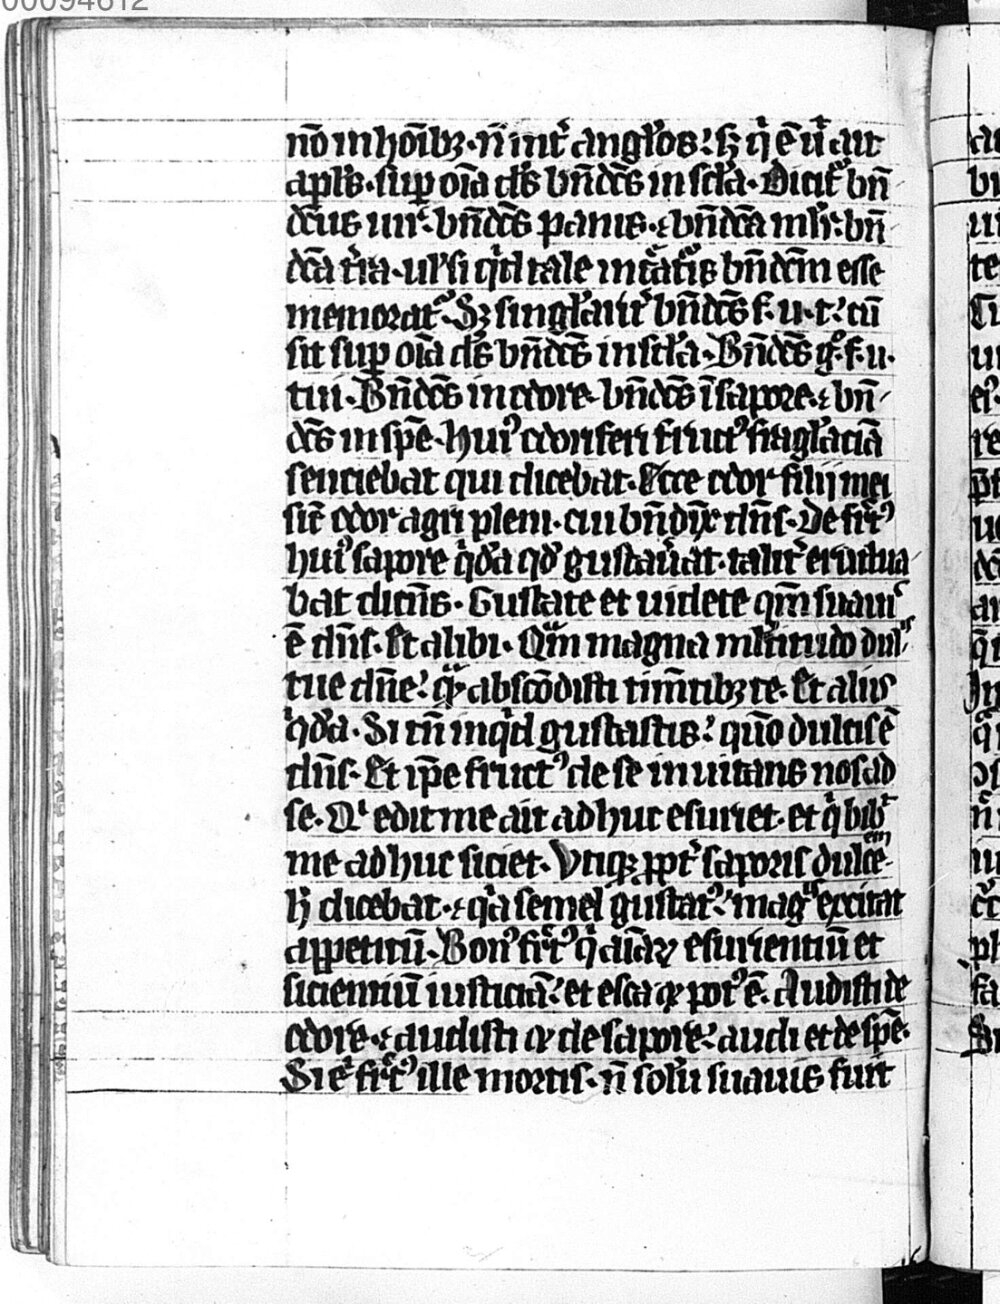 00094612
nō in hoīb⁊. n̄ int͛ angłos. s⁊ q̇ ē u̇t ait
apl's. sup oīa d's bn̄dc̄s in sc̄la. Dicit͛ bn̄
dc̄us uir. bn̄dc̄s panis. ⁊ bn̄dc̄a ml'r. bn̄
dc̄a t͛ra. ul' si qͥd tale int͛ at͛is bn̄dc̄m esse
memorat͛. S⁊ singl'arit͛ bn̄dc̄s f. u. t. cū
sit sup oīa d's bn̄dc̄s in sc̄la. Bn̄dc̄s g͛. f. u.
tui. Bn̄dc̄s in odore. bn̄dc̄s ī sapore. ⁊ bn̄
dc̄s in spē. Huiꝰ odoriferi fructꝰ fragl'aciā
senciebat qui dicebat. Ecce odor filij mei
sic̄ odor agri pleni. cui bn̄dix̄ dn̄s. De frc̄tꝰ
huiꝰ sapore q̇dā qd̄ gustau͛at. talit͛ eructua
bat dicēs. Gustate et uidete qm̄ suauis
ē dn̄s. Et alibi. Qm̄ magna ml'titudo dul'
tue dn̄e. qᵃ abscōdisti tim̄tib⁊ te. Et aliꝰ
q̇dā. Si tn̄ inqͥd gustastis. quō dulcis ē
dn̄s. Et ip̄e fructꝰ de se inuitans nos ad
se. Qͥ edit me ait adhuc esuriet. et q̇ bib͛
me adhuc siciet. Vtiqꝫ ꝓpt͛ saporis dulcē
em
h̄ dicebat. ⁊ qͥa semel gustatꝰ. magͥs excitat
appetitū. Bonꝰ frc̄tꝰ q̇ aīaꝝ esurientiū et
siciemiū iusticiā. et esca ⁊ potꝰ ē. Audisti de
odore. ⁊ audisti ⁊ de sapore. audi et de spē.
Si e͛ frc̄tꝰ ille mortis. n̄ solū suauis fuit